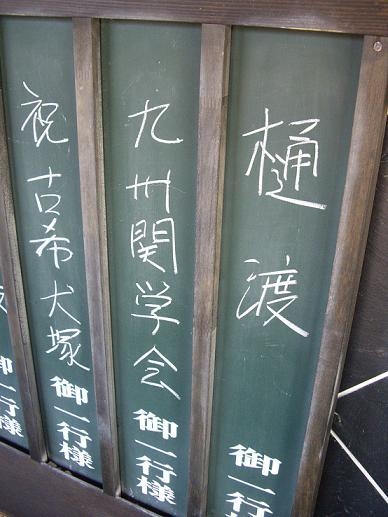 樋渡 御一行様
九州関学会 御一行様
祝古希犬塚 御一行様